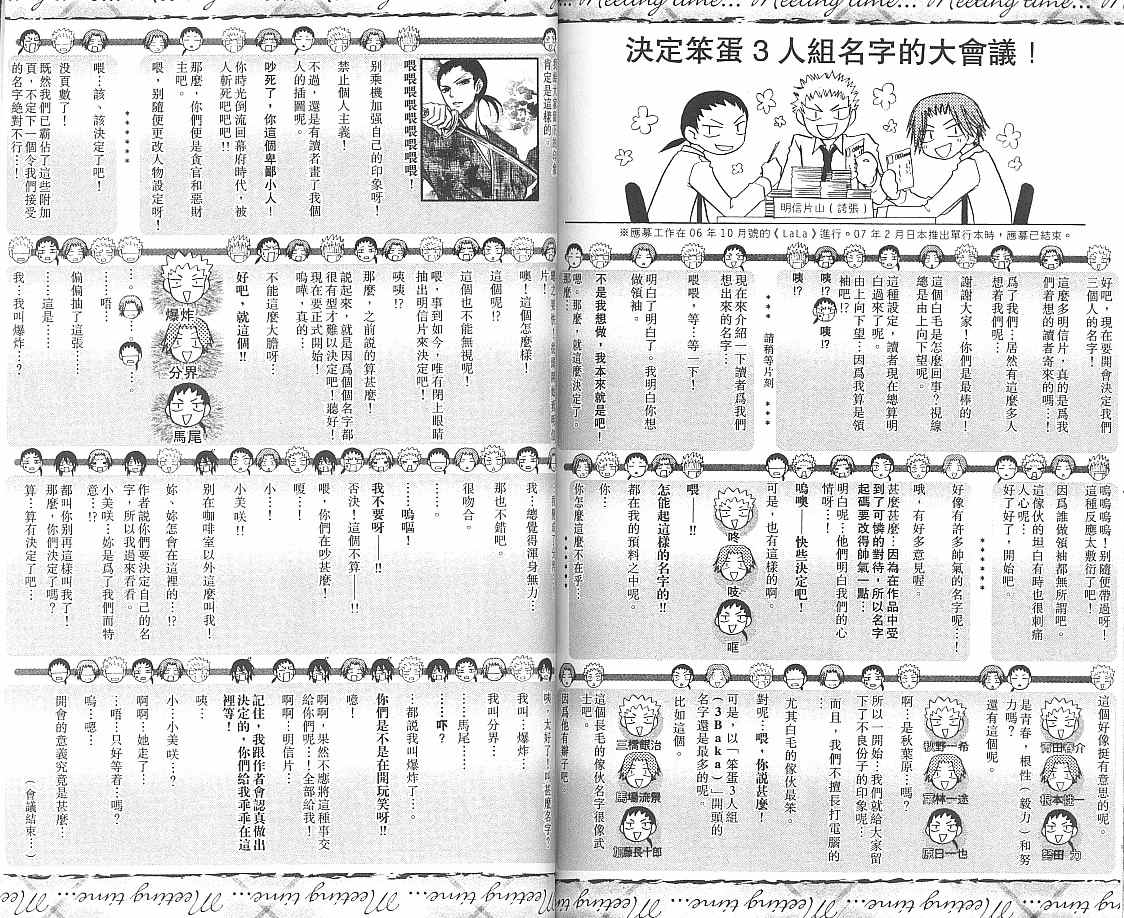 Meeting time... Meeting time... Meeting time...
決定笨蛋3人組名字的大會議！
明信片山（誇張）
※應募工作在06年10月號的《LaLa》進行。07年2月日本推出單行本時，應募已結束。
好吧，現在要開會決定我們
三個人的名字！
這麼多明信片，真的是爲我
們着想的讀者來的嗎…！
爲了我們…居然有這麼多人
想着我們呢…
謝謝大家！你們是最棒的！
這個白毛是怎麼回事？視線
總是由上向下望呢。
這種設定，讀者現在總算明
白過來了呢。
由上向下望…因爲我算是領
袖吧！
咦!?
咦!?
咦!?
＊＊＊　請稍等片刻　＊＊＊
現在來介紹一下讀者爲我們
想出來的名字…
喂喂，等…等一下！
明白了明白了。我明白你想
做領袖。
不是我想做，我本來就是吧！
嗯。那麼，就這麼決定了。
那麼…
嗚嗚嗚！別隨便帶過呀！
這種反應太敷衍了吧！
因爲誰做領袖都無所謂吧。
這傢伙的坦白有時也很刺痛
人心呢…
好了好了，開始吧。
＊＊＊＊＊＊
好像有許多帥氣的名字呢…！
哦，有好多意見喔。
甚麼甚麼…因為在作品中受
到了可憐的對待，所以名字
起碼要改得帥氣一點…
明白呢…他們明白我們的心
情呀…！
嗚噢——快些決定吧！
可是，也有這樣的啊。
咚
吱
哐
喂——!!
怎能起這樣的名字的!!
都在我的預料之中呢。
你…
你怎麼這麼不在乎…
＊＊＊＊＊
這個好像挺有意思的呢。
有田春介
根本健一
努田　力
是青春，根性（毅力）和努
力嗎？
還有這個呢。
秋野一希
原林一途
原日一也
啊…是秋葉原…嗎？
所以一開始…我們就給大家留
下了不良份子的印象呢…
而且，我們不擅長打電腦的
…
尤其白毛的傢伙最笨。
對呢…喂，你說甚麼！
可是，以「笨蛋3人組
（3Baka）」開頭的
名字還是最多的呢。
比如這個。
三橋銀治
馬場流景
加藤長十郎
這個長毛的傢伙名字很像武
士吧。
因爲他有辮子吧。
肯定是這樣的。
喂喂喂喂喂喂喂喂喂！
別乘機加强自己的印象呀！
禁止個人主義！
不過，還是有讀者畫了我個
人的插圖呢。
吵死了，你這個卑鄙小人！
你時光倒流回幕府時代，被
人斬死吧吧吧!!
那麼，你們便是貪官和惡財
主吧。
喂，别隨便更改人物設定呀！
＊＊＊＊＊＊
喂…該、該決定了吧！
没頁數了！
既然我們已霸佔了這些附加
頁，不定下一個令我們接受
的名字絶對不行…！
片！
噢！這個怎麼樣！
這個也不能無視呢！
這個呢!?
咦咦!?
喂，事到如今，唯有閉上眼睛
抽出明信片來決定吧！
那麼，之前説的算甚麼！
説起來，就是因爲個個名字都
很有型才難以決定吧！聽好！
現在要正式開始！
嗚嘩，真的…
不能這麼大膽呀…
好吧，就這個!!
爆炸
分界
馬尾
…。
…。
……唔…
偏偏抽了這張……
……這是……
我…我叫爆炸…？
我…總覺得渾身無力…
那也不錯吧。
很吻合。
……。
……嗚嘔！
我不要呀——!!
否決！這個不算——!!
喂，你們在吵甚麼！
嗄…！
小…！
小美咲!!
别在咖啡室以外這麼叫我！
妳、妳怎會在這裡的…!?
作者説你們要決定自己的名
字，所以我過來看看。
小美咲…妳是爲了我們而特
意…!?
都叫你别再這樣叫我了！
那麼，你們決定了嗎？
算…算有決定了吧…
咦！太好了！叫甚麼名字？
我叫…爆炸…
我叫分界…
……馬尾……
…都説我叫爆炸了…。
……吓？
你們是不是在開玩笑呀!!
噫！
啊啊！果然不應將這種事交
給你們呢…！全部給我！
啊啊…明信片…
記住，我跟作者會認真做出
決定的，你們給我乖乖在這
裡等！
咦…
小…小美咲…？
啊啊…她走了…
…唔…只好等着…嗎？
嗚…嗯…
開會的意義究竟是甚麼…
（會議結束…）
Meeting time... Meeting time... Meeting time... Meeting time...